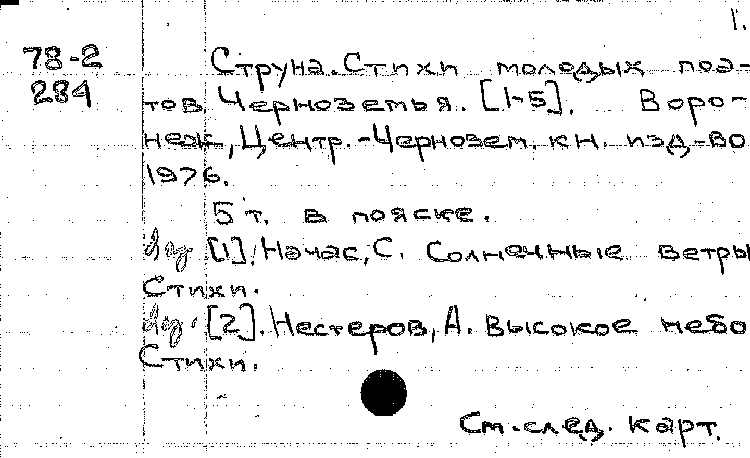 1.
78-2
284
Струна. Стихи молодых поэ-
тов Черноземья. [1-5]. Воро-
неж, Центр.-Чернозем. кн. изд-во
1976.
5 т. в пояске.
[1]. Начас, С. Солнечные ветры
Стихи.
[2]. Нестеров, А. Высокое небо
Стихи.
См. след. карт.